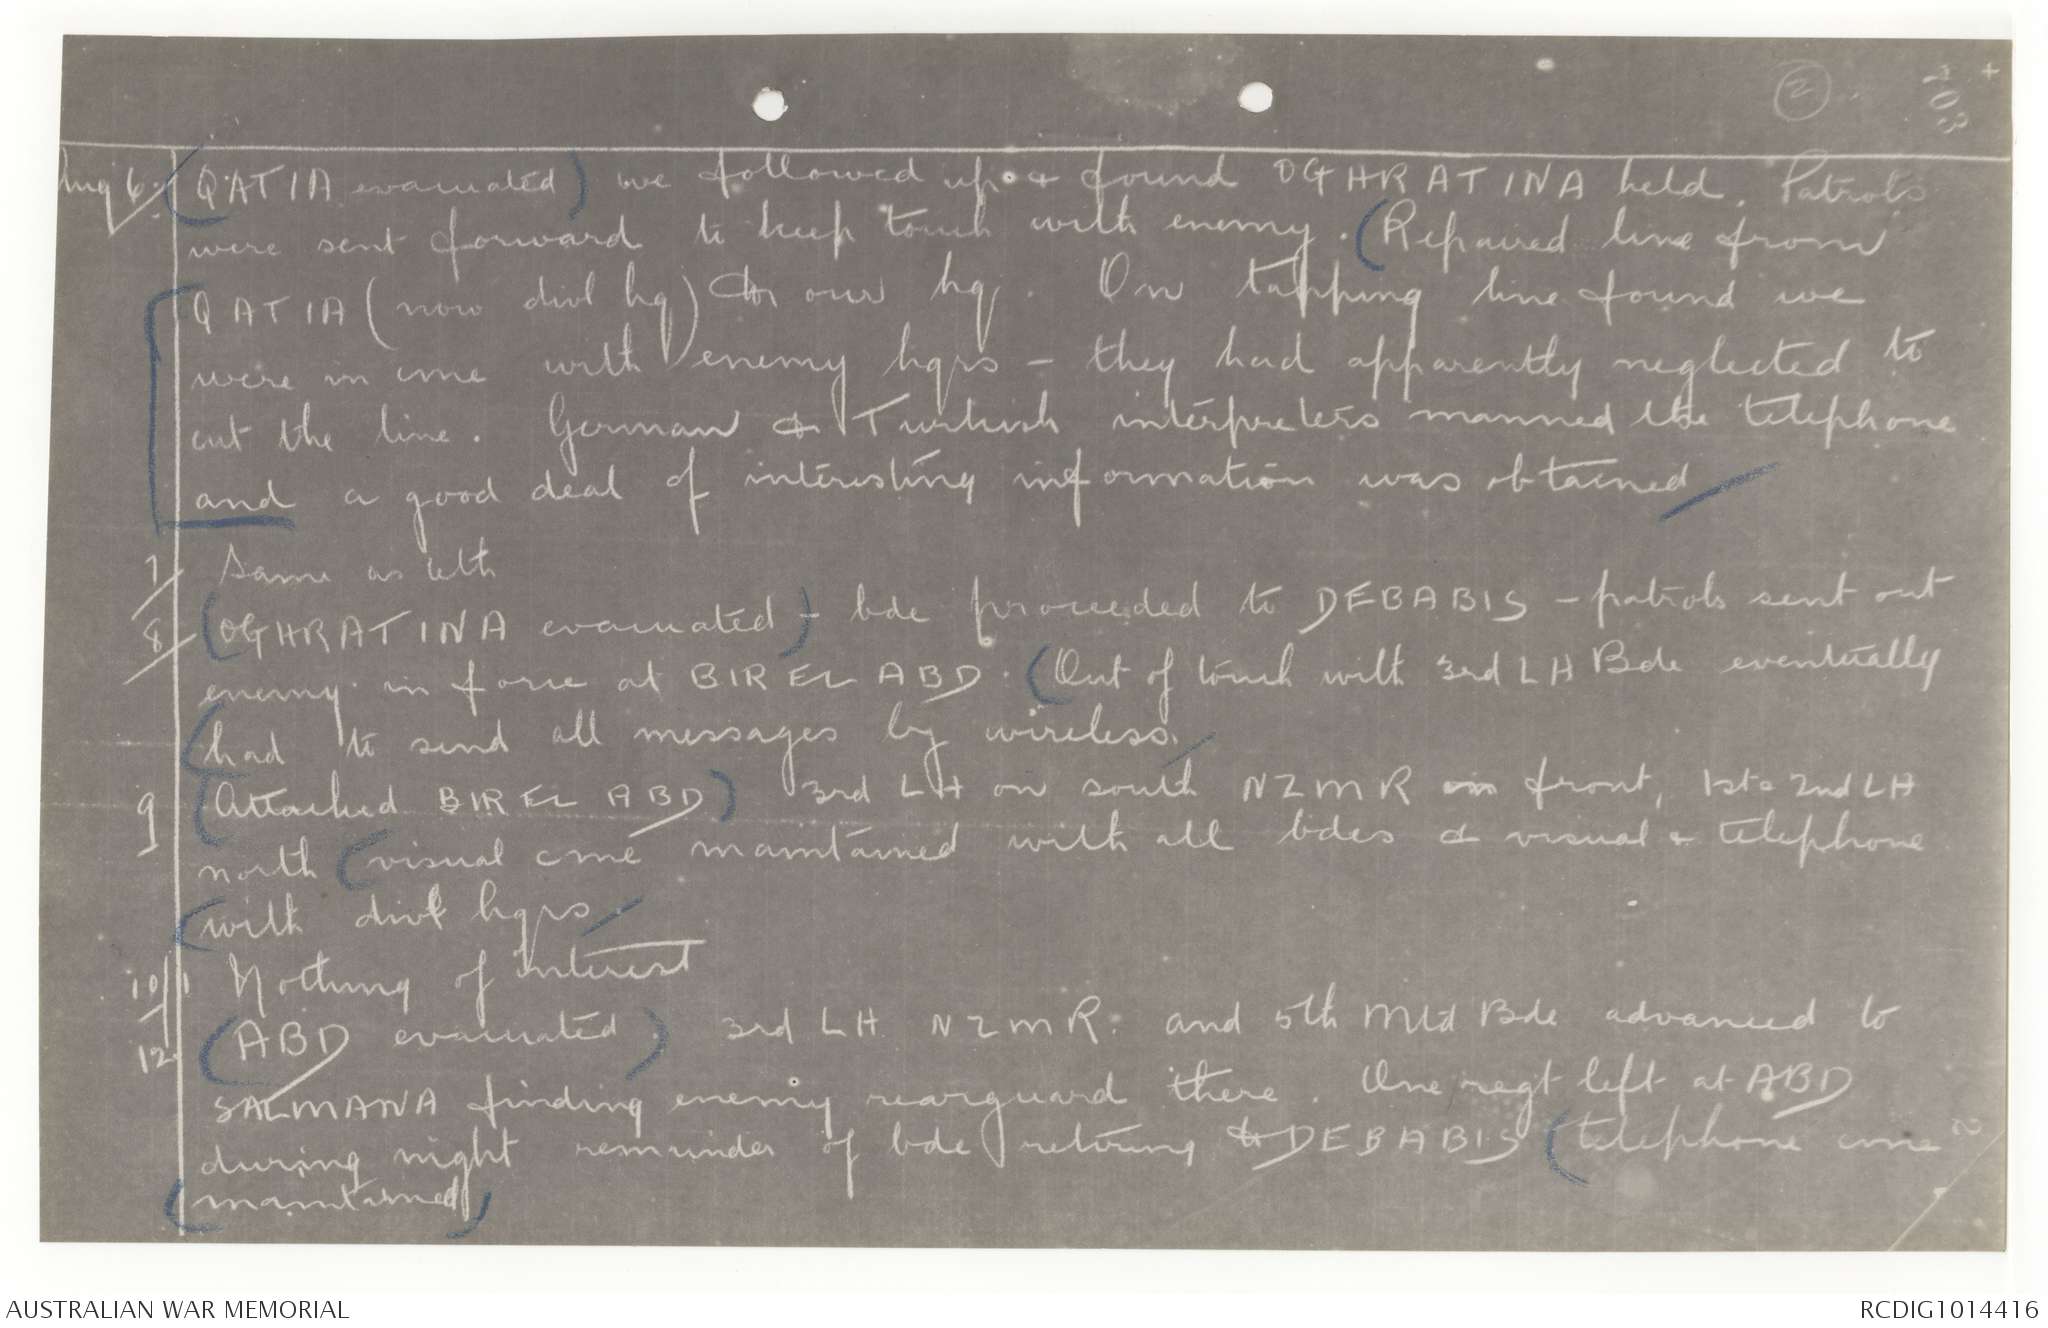 2
103
Aug 6. (QATIA evacuated) we followed up & found OGHRATINA held. Patrols
were sent forward to keep touch with enemy. (Repaired line from
QATIA (now divl hq) to our hq. On tapping line found we
were in cmc with enemy hqrs - they had apparently neglected to
cut the line. German & Turkish interpreters manned the telephone
and a good deal of interesting information was obtained
7 Same as 6th
8 (OGHRATINA evacuated) - bde proceeded to DEBABIS - patrols sent out
enemy in force at BIR EL ABD. (Out of touch with 3rd LH Bde eventually
(had to send all messages by wireless.
9 (Attacked BIR EL ABD) 3rd LH on south NZMR in front, 1st & 2nd LH
north (visual cmc maintained with all bdes & visual & telephone
(with divl hqrs
10/11 Nothing of interest
12. (ABD evacuated) 3rd LH NZMR. and 5th Mtd Bde advanced to
SALMANA finding enemy rearguard there. One regt left at ABD
during night remainder of bde retiring to DEBABIS (telephone cmc
(maintained)
2
AUSTRALIAN WAR MEMORIAL
RCDIG1014416